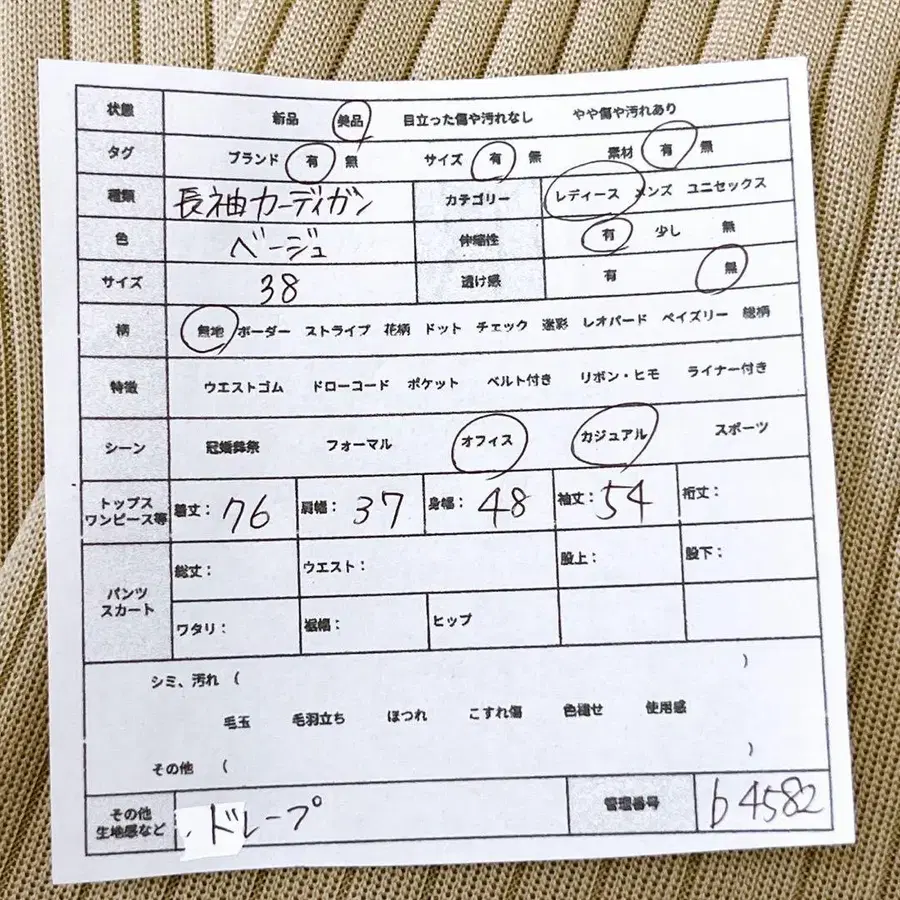 状態 新品 美品 目立った傷や汚れなし やや傷や汚れあり
タグ ブランド 有 無 サイズ 有 無 素材 有 無
種類 長袖カーディガン カテゴリー レディース メンズ ユニセックス
色 ベージュ 伸縮性 有 少し 無
サイズ 38 透け感 有 無
柄 無地 ボーダー ストライプ 花柄 ドット チェック 迷彩 レオパード ペイズリー 総柄
特徴 ウエストゴム ドローコード ポケット ベルト付き リボン・ヒモ ライナー付き
シーン 冠婚葬祭 フォーマル オフィス カジュアル スポーツ
トップス
ワンピース等 着丈: 76 肩幅: 37 身幅: 48 袖丈: 54 裄丈:
パンツ
スカート 総丈: ウエスト: 股上: 股下:
ワタリ: 裾幅: ヒップ
シミ、汚れ ( )
毛玉 毛羽立ち ほつれ こすれ傷 色褪せ 使用感
その他 ( )
その他
生地感など ドレープ 管理番号 b4582